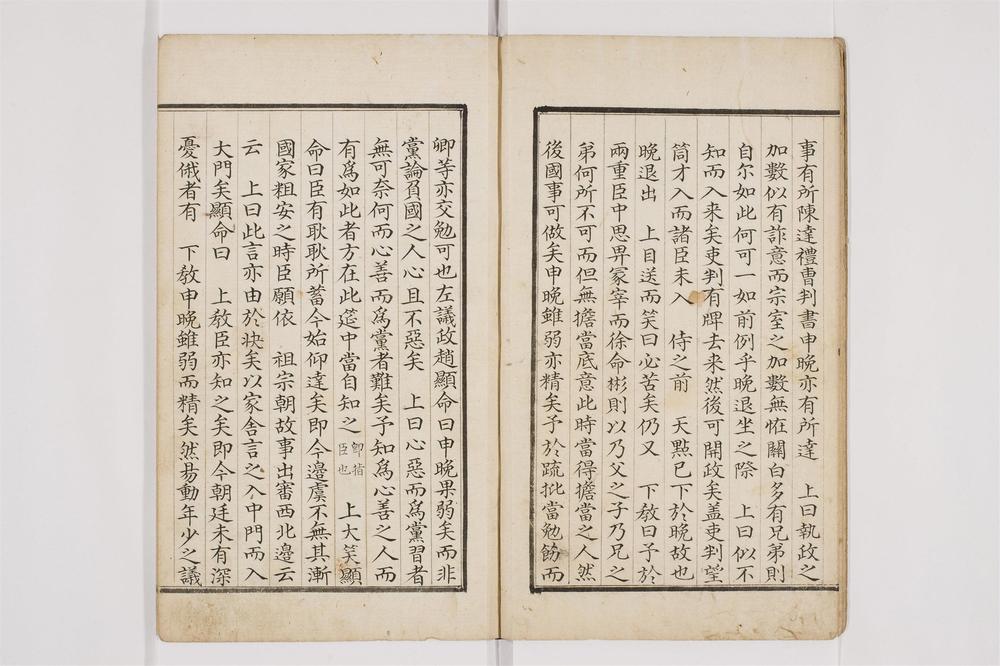 事有所陳達禮曹判書申晚亦有所達　上曰執政之
加數似有詐意而宗室之加數無恠關白多有兄弟則
自尔如此何可一如前例乎晚退坐之際　上曰似不
知而入来矣吏判有牌去来然後可開政矣盖吏判望
筒才入而諸臣未入　侍之前　天點已下於晚故也
晚退出　上目送而笑曰必苦矣仍又　下敎曰予於
兩重臣中思畀冡宰而徐命彬則以乃父之子乃兄之
弟何所不可而但無擔當底意此時當得擔當之人然
後國事可做矣申晚雖弱亦精矣予於疏批當勉飭而
卿等亦交勉可也左議政趙顯命曰申晚果弱矣而非
黨論負國之人心且不惡矣　上曰心惡而爲黨習者
無可奈何而心善而爲黨者難矣予知爲心善之人而
有爲如此者方在此筵中當自知之卽指臣也　上大笑顯
命曰臣有耿耿所蓄今始仰達矣即今邊虞不無其漸
國家粗安之時臣願依　祖宗朝故事出審西北邊云
云　上曰此言亦由於抰矣以家舍言之入中門而入
大門矣顯命曰　上敎臣亦知之矣即今朝廷未有深
憂俄者有　下敎申晚雖弱而精矣然昜動年少之議